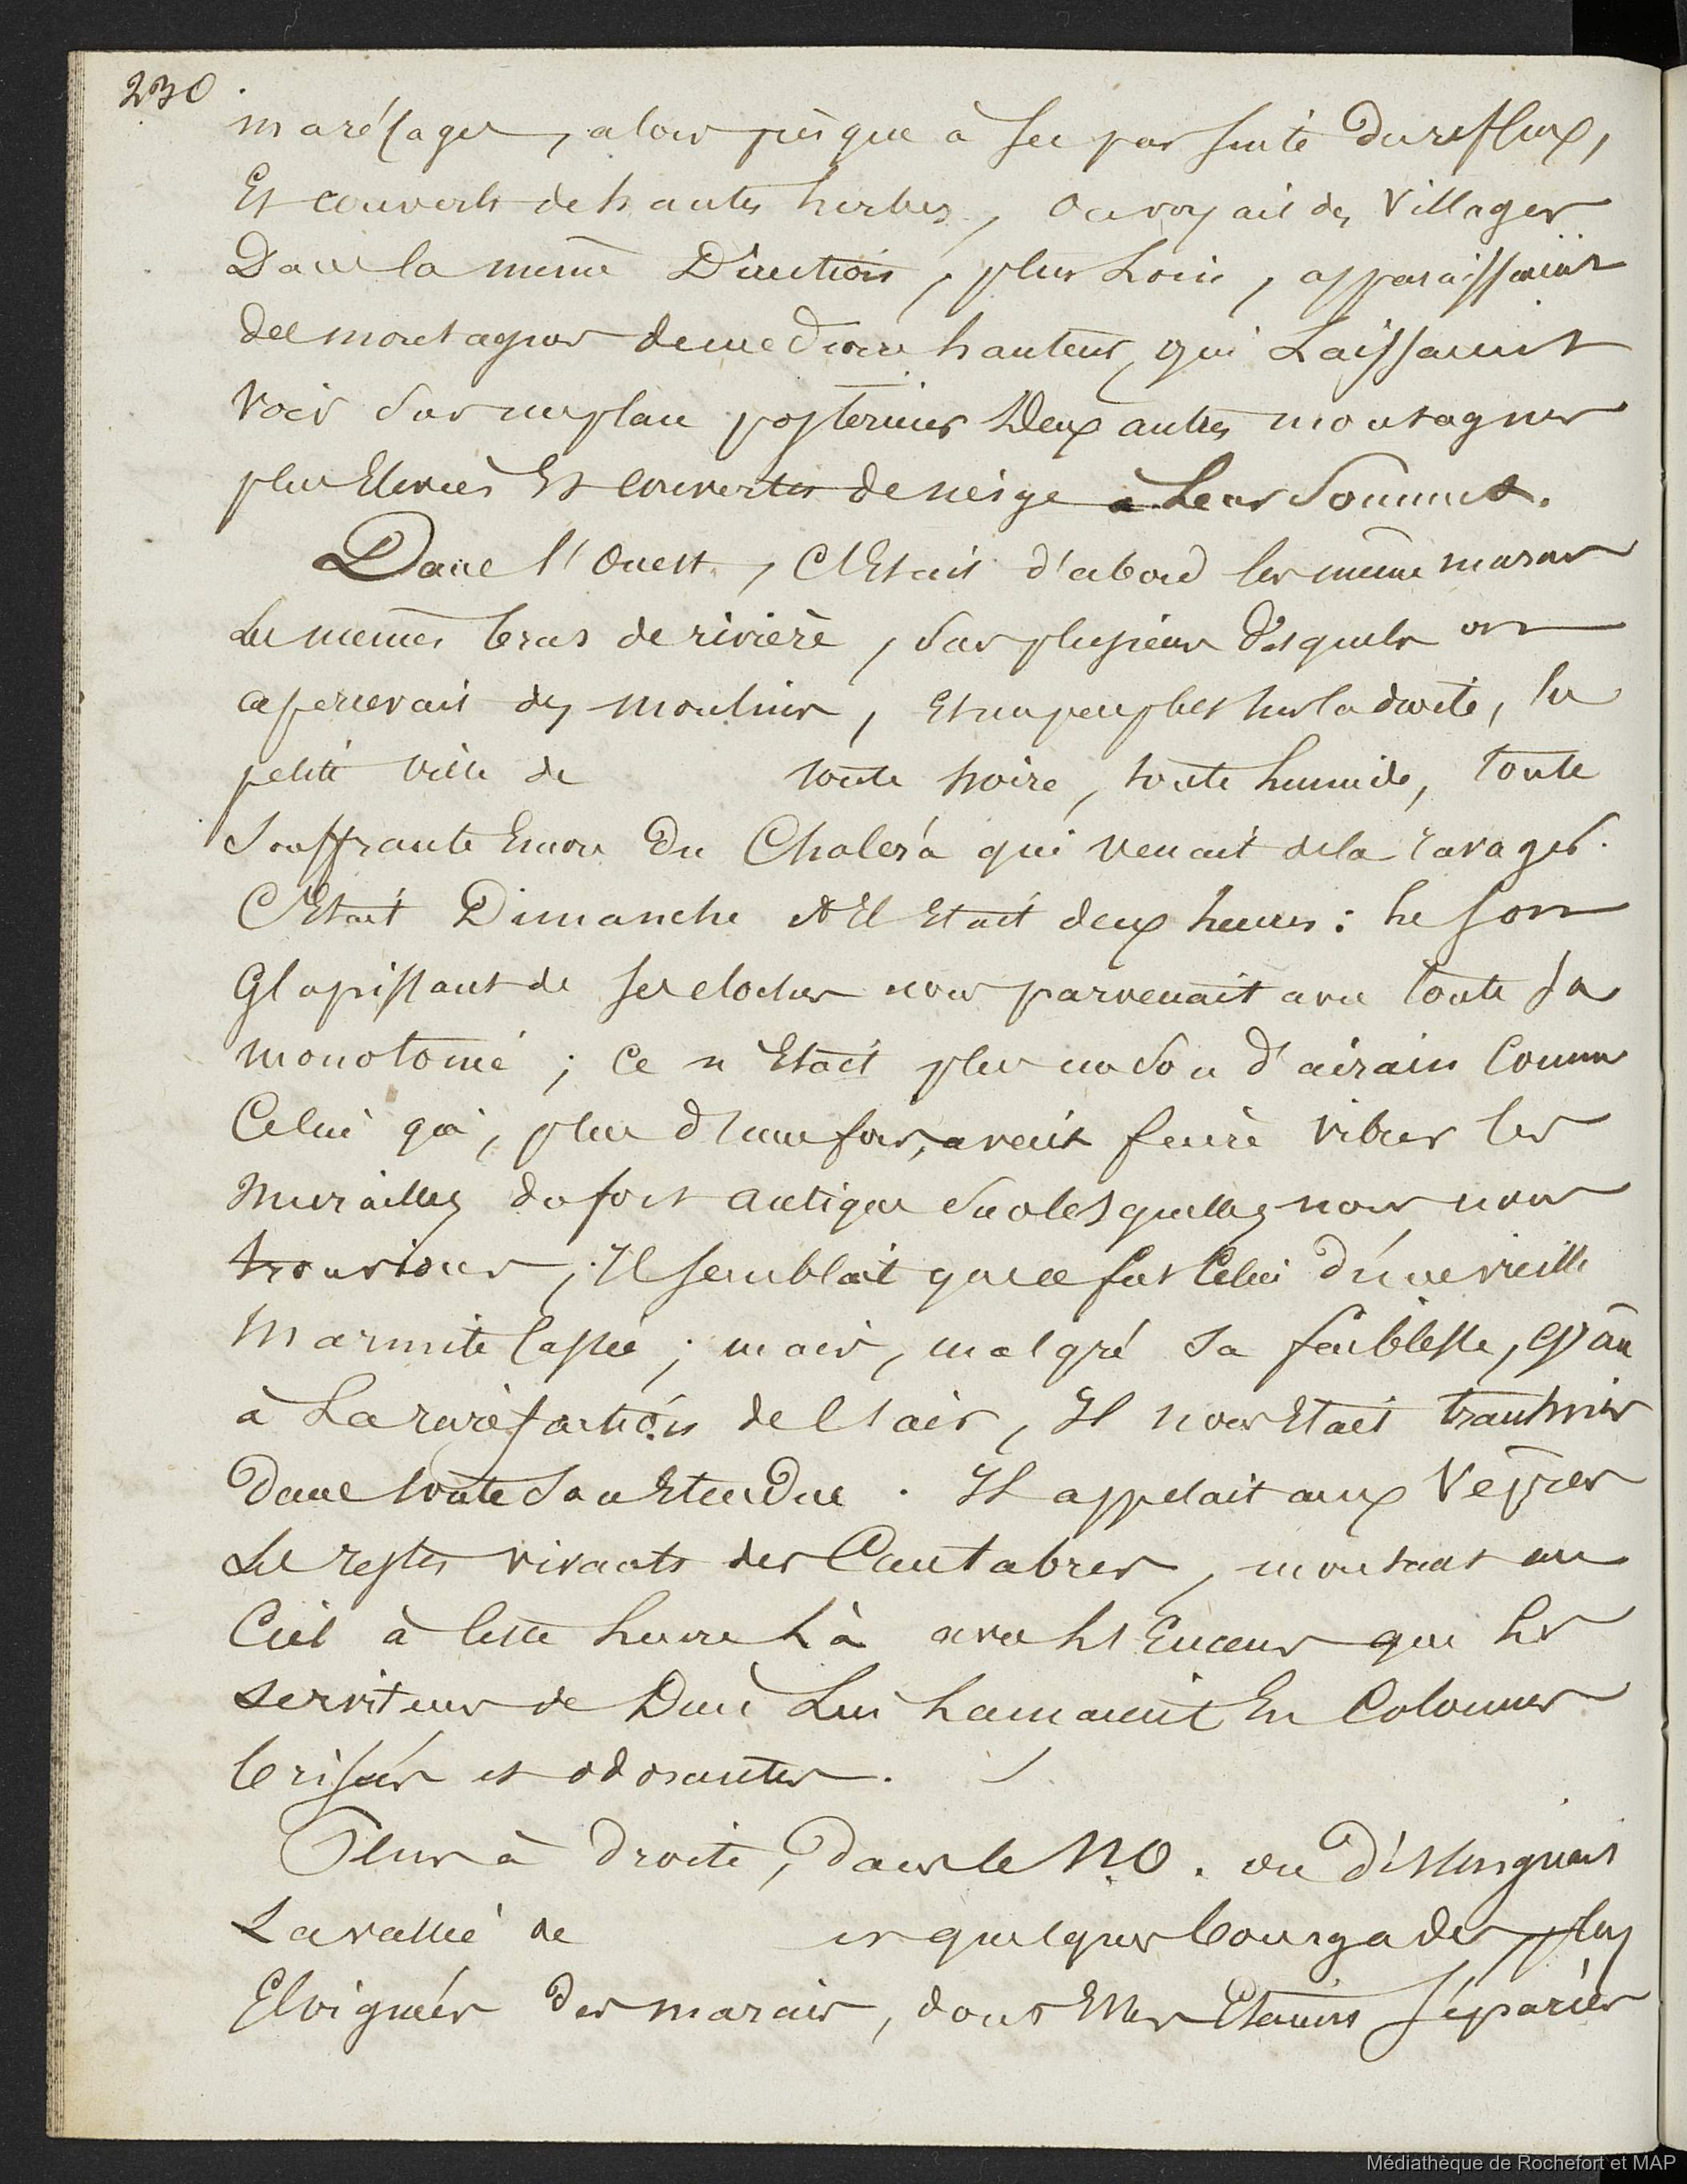 230
marécages, alors presque à sec par suite du reflux,
Et couverts de hautes herbes, on voyait des Villages
Dans la même Direction, plus Loin, apparaissaient
des montagnes de médiocre hauteur, qui Laissaient
voir sur un plan postérieur Deux autres montagnes
plus Elevées Et couvertes de neige à Leur Sommet.
Dans l'Ouest, C'Etait d'abord les même marais
Les memes bras de rivière, sur plusieurs desquels on
apercevait des moulins, Et un peu plus sur la droite, la
petite ville de toute noire, toute humide, toute
Souffrante Encore Du Choléra qui venait de la ravager.
C'Etait Dimanche et Il Etait deux heures : le son
Glapissant de ses cloches nous parvenait avec toute sa
monotonie ; Ce n'Etait plus un son d'airain Comme
Celui qui, plus d'une fois, avait faire vibrer les
Murailles du fort antique sur lesquelles nous nous
trouvions ; Il semblait que ce fut Celui d'une vieille
Marmite Cassée ; mais, malgré sa faiblesse,
à La raréfaction de l'air, Il nous Etait transmis
Dans toute son Etendue. Il appelait aux Vêpres
Les restes vivants des Cantabres, montant au
Ciel à Cette heure Là avec l'Encens que les
serviteurs de Dieu Lui En Colonnes
brisées et odorantes.
Plus à droite, dans le N.O. on Distinguait
La vallée de et quelques bourgades plus
Eloignées des marais, dont Elles Etaient Séparées
Médiathèque de Rochefort et MAP